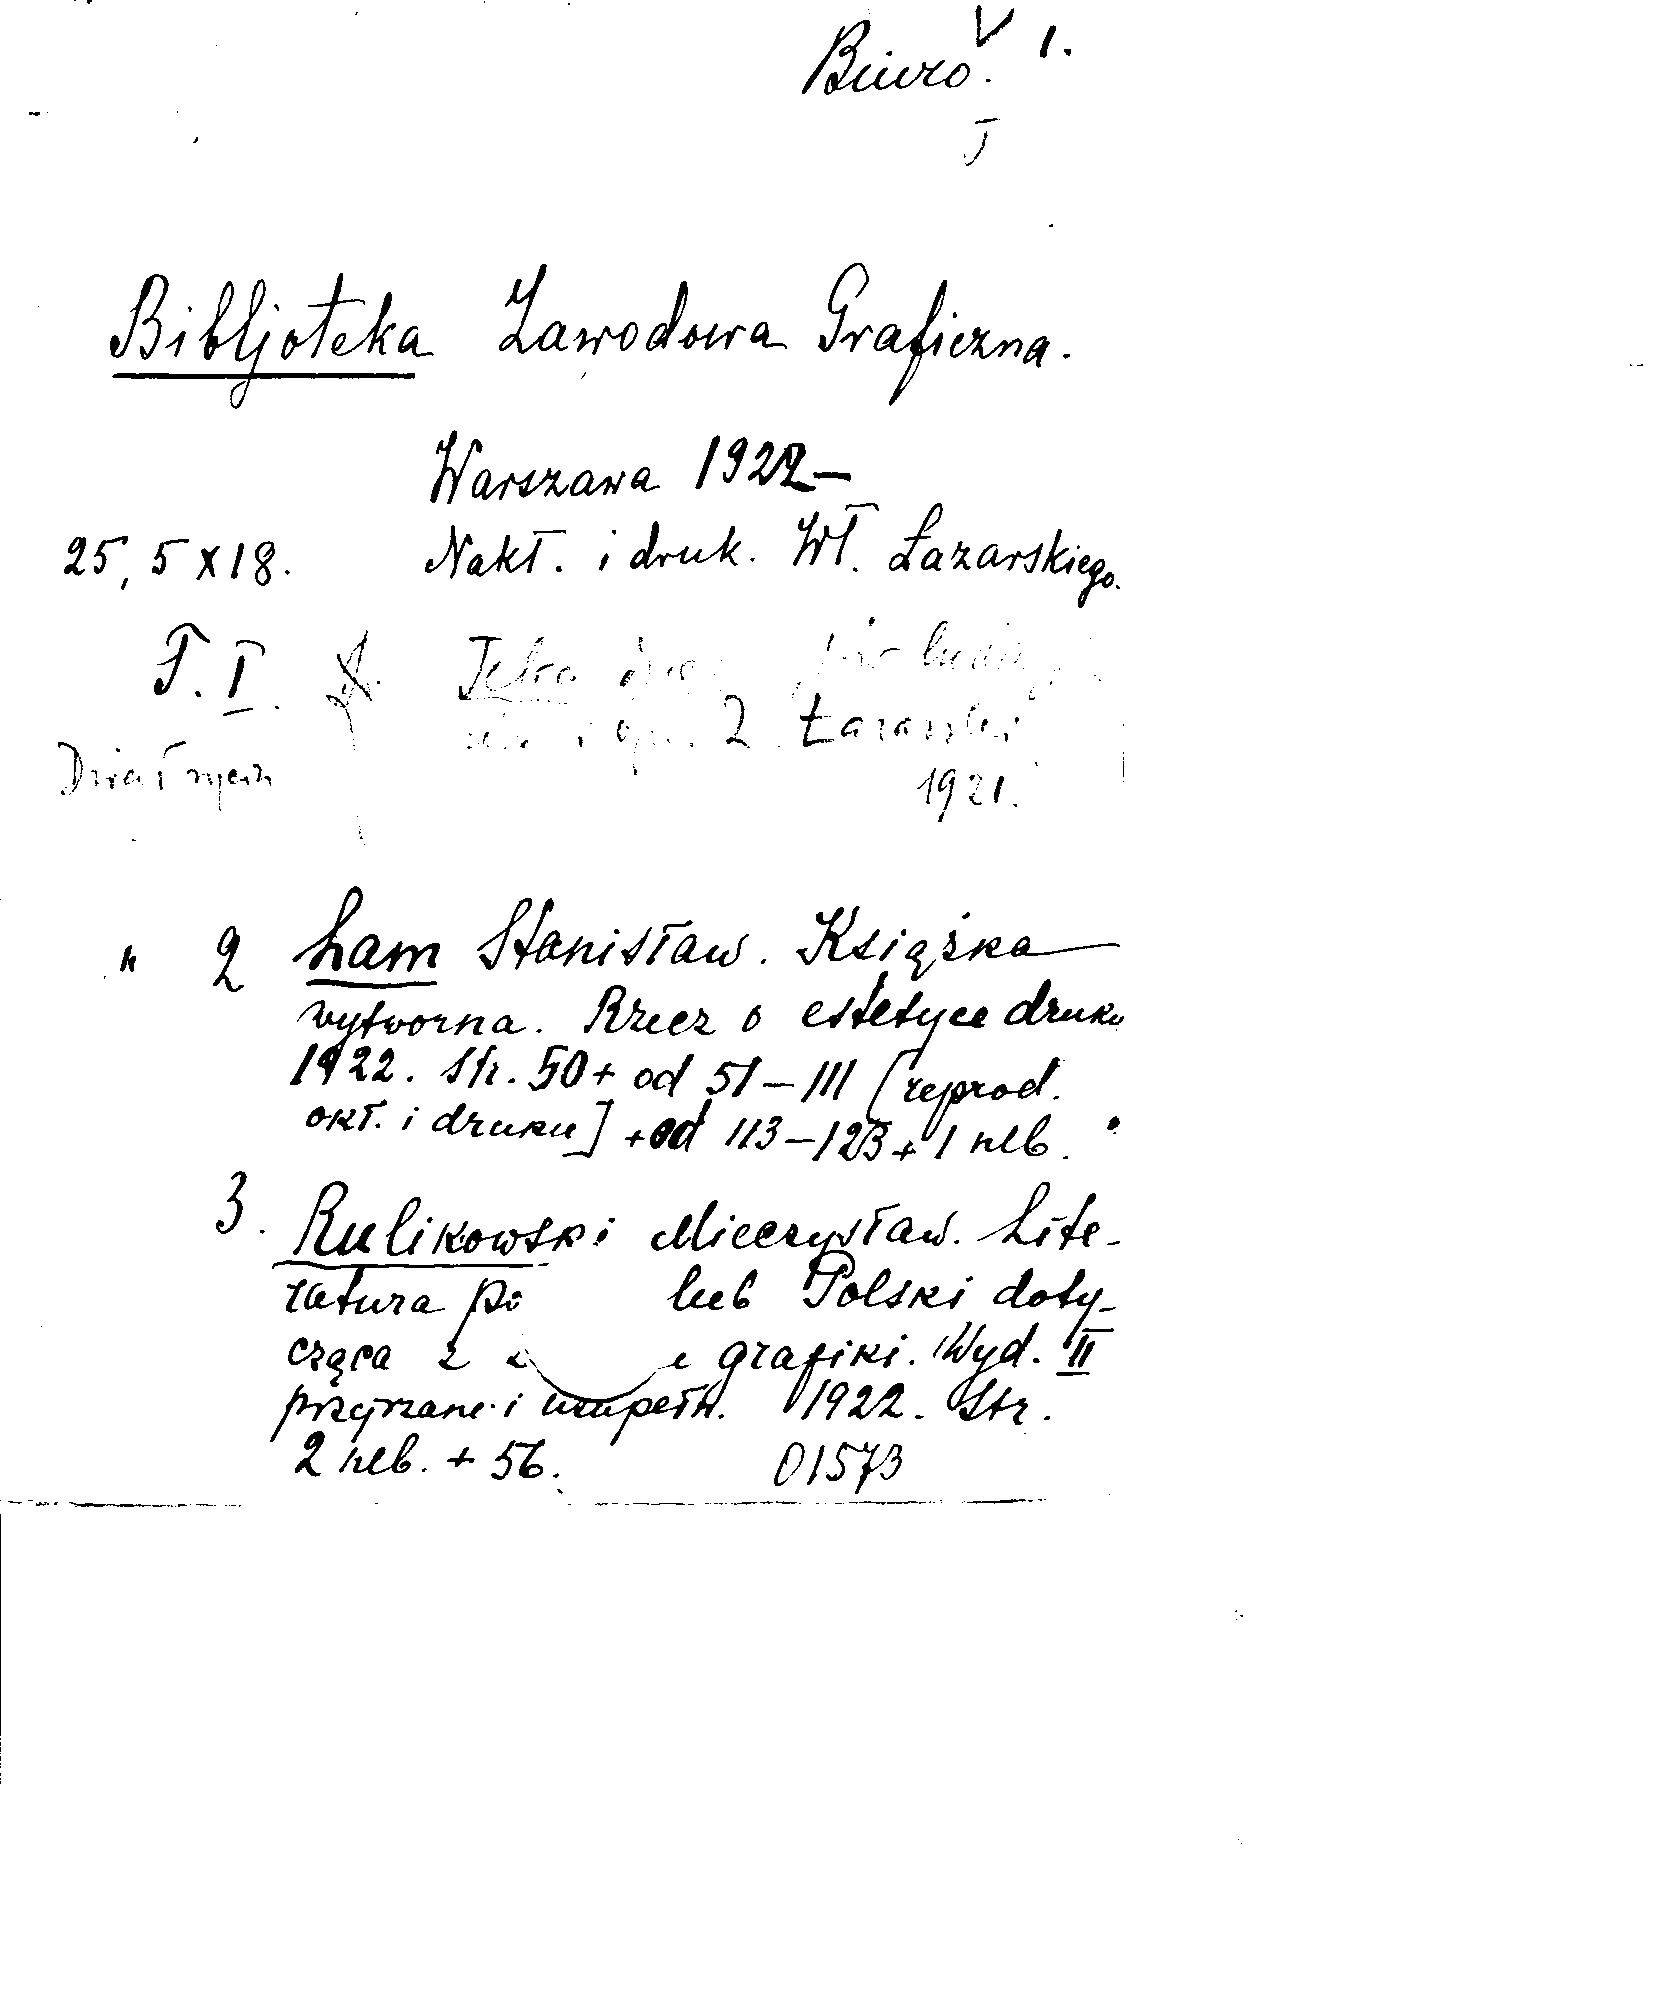 V 1.
Biuro.
J
Bibljoteka Zawodowa Graficzna.
Warszawa 1922—
25,5 x 18. Nakł. i druk. Wł. Łazarskiego.
T. I. Teka
Z. Łazarski
Dział rycin
1921.
" 2 Lam Stanisław. Książka
wytworna. Rzecz o estetyce druku
1922. Str. 50 + od 51 – 111 [reprod.
okł. i druku] + od 113 – 123 + 1 nlb.
3. Rulikowski Mieczysław. Lite-
ratura po lub Polski doty-
cząca z grafiki. Wyd. II
przejrzane i uzupełn. 1922. Str.
2 nlb. + 56. 01573